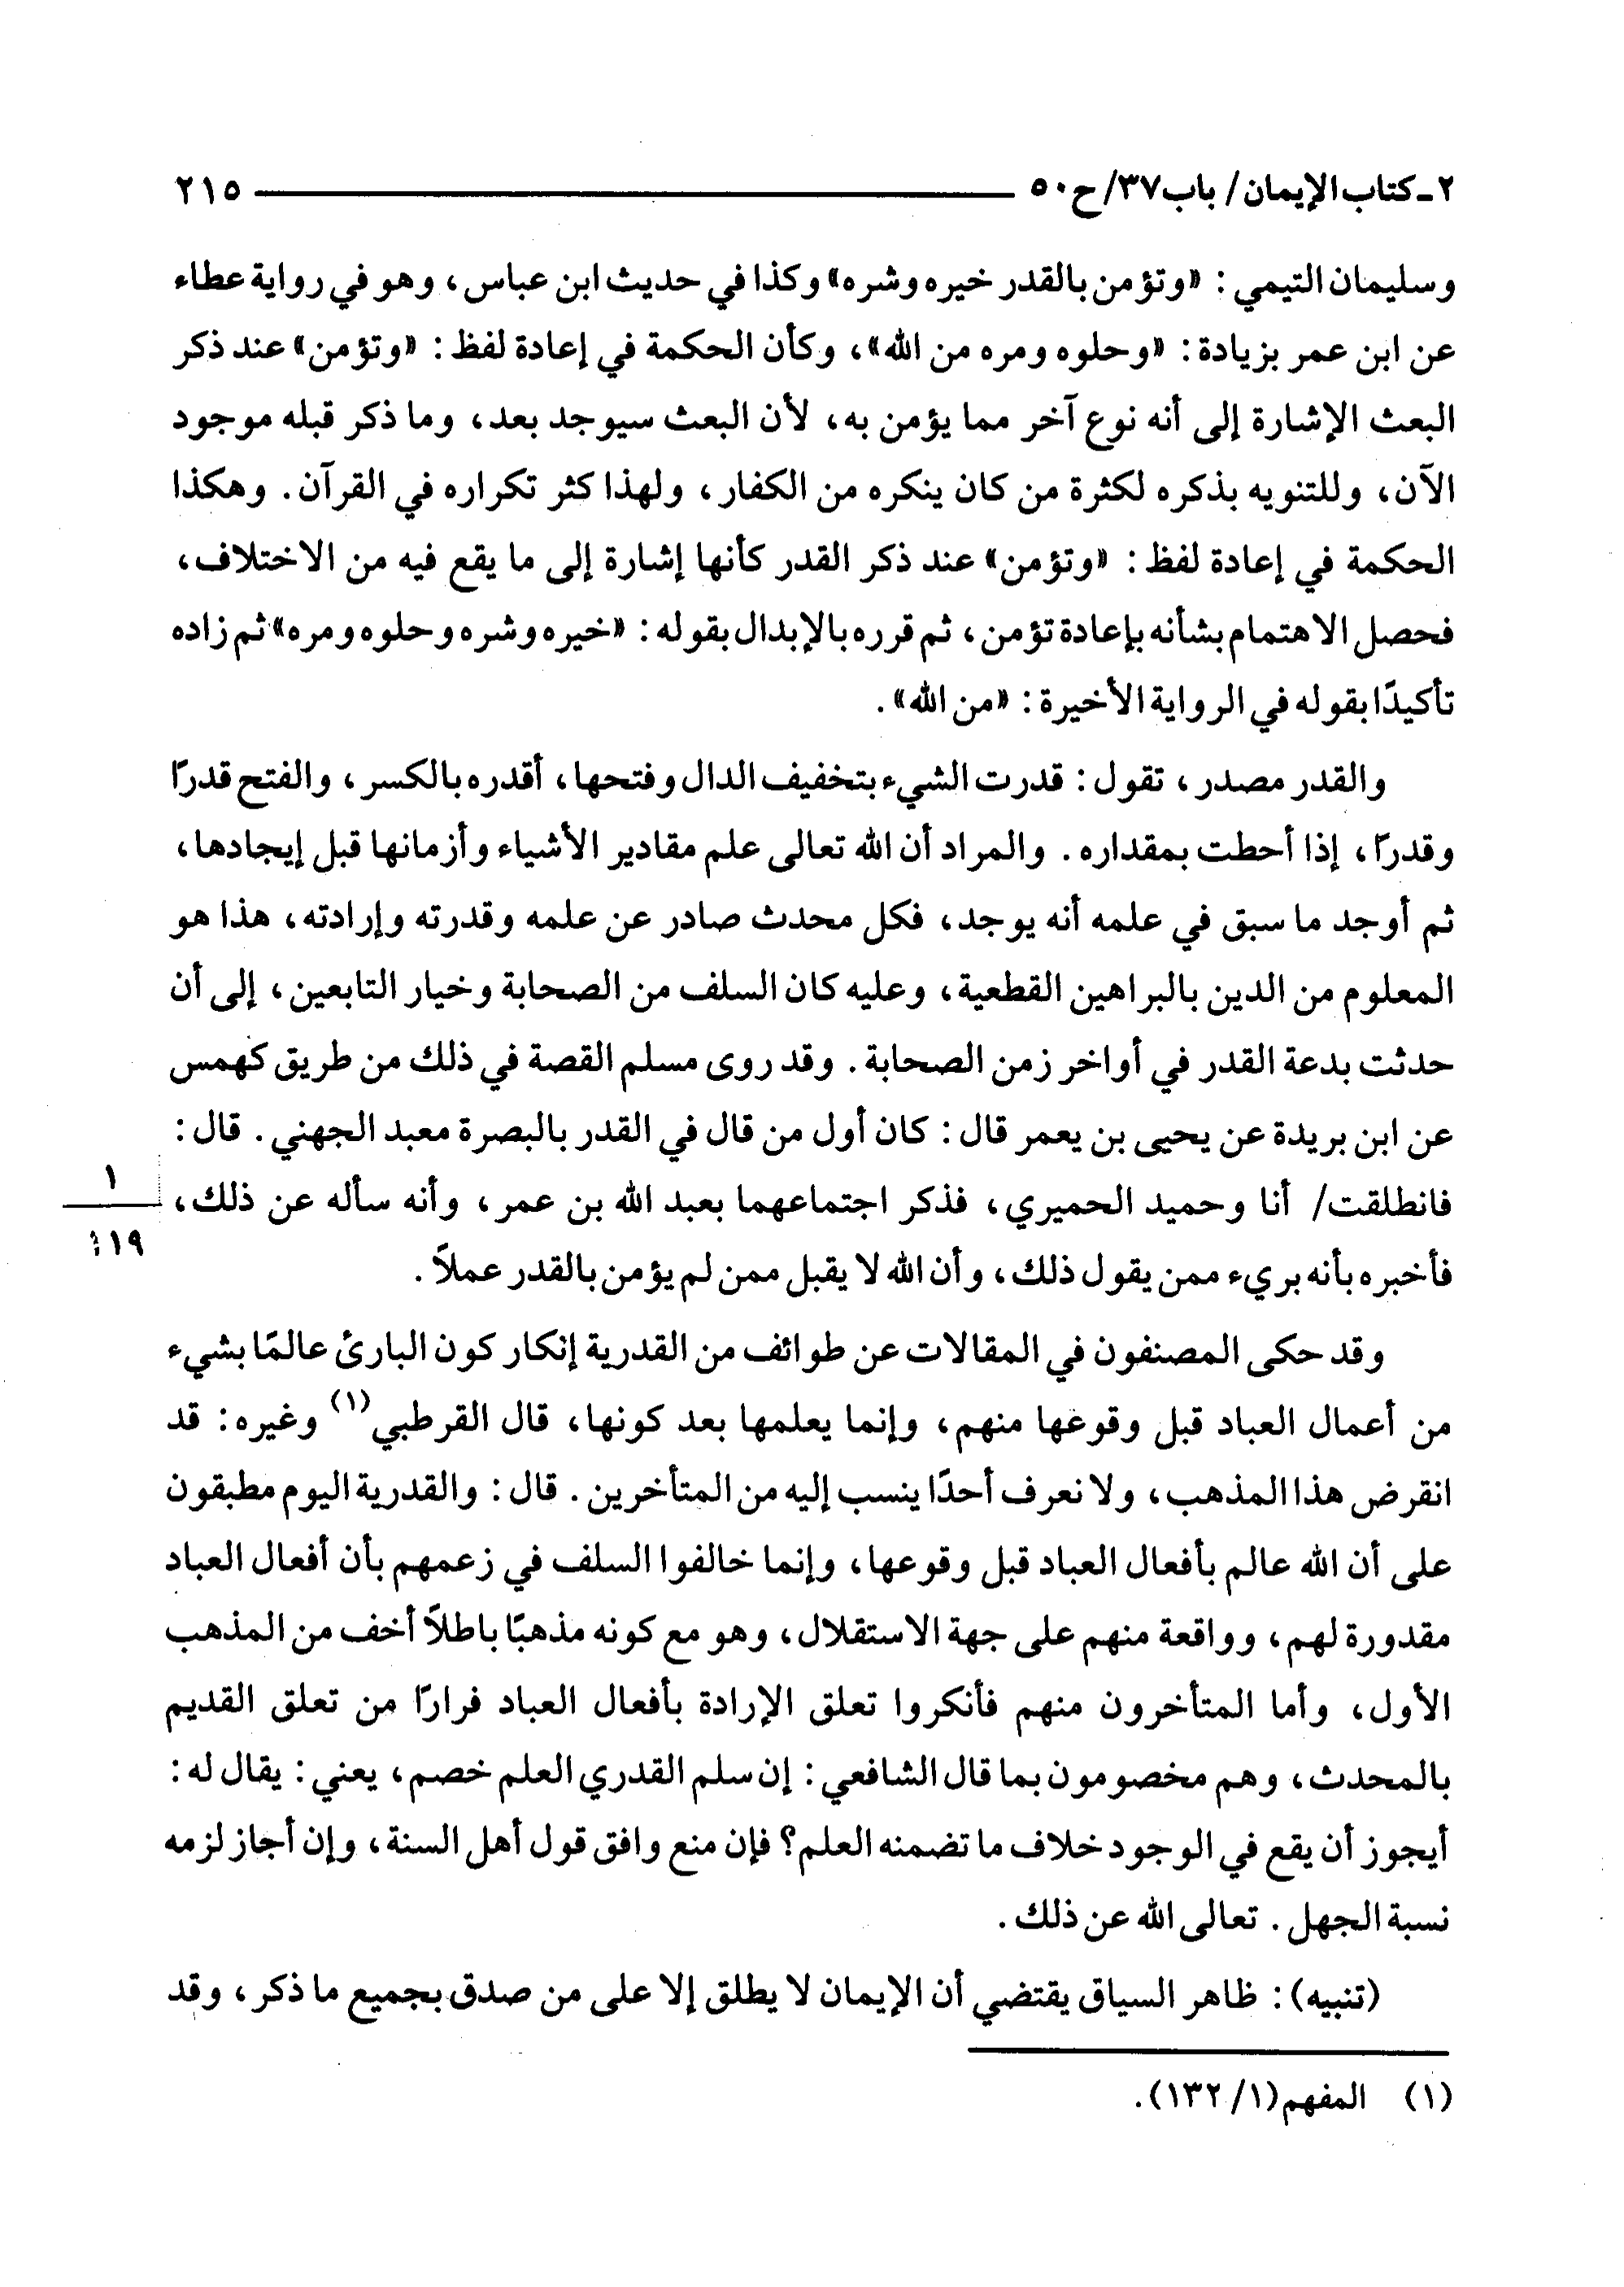 ٢-كتاب الإيمان/ باب٣٧/ح٥٠ ٢١٥
وسليمان التيمي: «وتؤمن بالقدر خيره وشره» وكذا في حديث ابن عباس، وهو في رواية عطاء
عن ابن عمر بزيادة: «وحلوه ومره من الله»، وكأن الحكمة في إعادة لفظ: «وتؤمن» عند ذكر
البعث الإشارة إلى أنه نوع آخر مما يؤمن به، لأن البعث سيوجد بعد، وما ذكر قبله موجود
الآن، وللتنويه بذكره لكثرة من كان ينكره من الكفار، ولهذا كثر تكراره في القرآن. وهكذا
الحكمة في إعادة لفظ: «وتؤمن» عند ذكر القدر كأنها إشارة إلى ما يقع فيه من الاختلاف،
فحصل الاهتمام بشأنه بإعادة تؤمن، ثم قرره بالإبدال بقوله: «خيره وشره وحلوه ومره» ثم زاده
تأكيدًا بقوله في الرواية الأخيرة: «من الله».
والقدر مصدر، تقول: قدرت الشيء بتخفيف الدال وفتحها، أقدره بالكسر، والفتح قدرًا
وقدرًا، إذا أحطت بمقداره. والمراد أن الله تعالى علم مقادير الأشياء وأزمانها قبل إيجادها،
ثم أوجد ما سبق في علمه أنه يوجد، فكل محدث صادر عن علمه وقدرته وإرادته، هذا هو
المعلوم من الدين بالبراهين القطعية، وعليه كان السلف من الصحابة وخيار التابعين، إلى أن
حدثت بدعة القدر في أواخر زمن الصحابة. وقد روى مسلم القصة في ذلك من طريق كهمس
عن ابن بريدة عن يحيى بن يعمر قال: كان أول من قال في القدر بالبصرة معبد الجهني. قال:
فانطلقت/ أنا وحميد الحميري، فذكر اجتماعهما بعبد الله بن عمر، وأنه سأله عن ذلك،
١
١١٩
فأخبره بأنه بريء ممن يقول ذلك، وأن الله لا يقبل ممن لم يؤمن بالقدر عملاً.
وقد حكى المصنفون في المقالات عن طوائف من القدرية إنكار كون البارئ عالمًا بشيء
من أعمال العباد قبل وقوعها منهم، وإنما يعلمها بعد كونها، قال القرطبي(١) وغيره: قد
انقرض هذا المذهب، ولا نعرف أحدًا ينسب إليه من المتأخرين. قال: والقدرية اليوم مطبقون
على أن الله عالم بأفعال العباد قبل وقوعها، وإنما خالفوا السلف في زعمهم بأن أفعال العباد
مقدورة لهم، وواقعة منهم على جهة الاستقلال، وهو مع كونه مذهبًا باطلاً أخف من المذهب
الأول، وأما المتأخرون منهم فأنكروا تعلق الإرادة بأفعال العباد فرارًا من تعلق القديم
بالمحدث، وهم مخصومون بما قال الشافعي: إن سلم القدري العلم خصم، يعني: يقال له:
أيجوز أن يقع في الوجود خلاف ما تضمنه العلم؟ فإن منع وافق قول أهل السنة، وإن أجاز لزمه
نسبة الجهل. تعالى الله عن ذلك.
(تنبيه): ظاهر السياق يقتضي أن الإيمان لا يطلق إلا على من صدق بجميع ما ذكر، وقد
(١) المفهم (١/ ١٣٢).